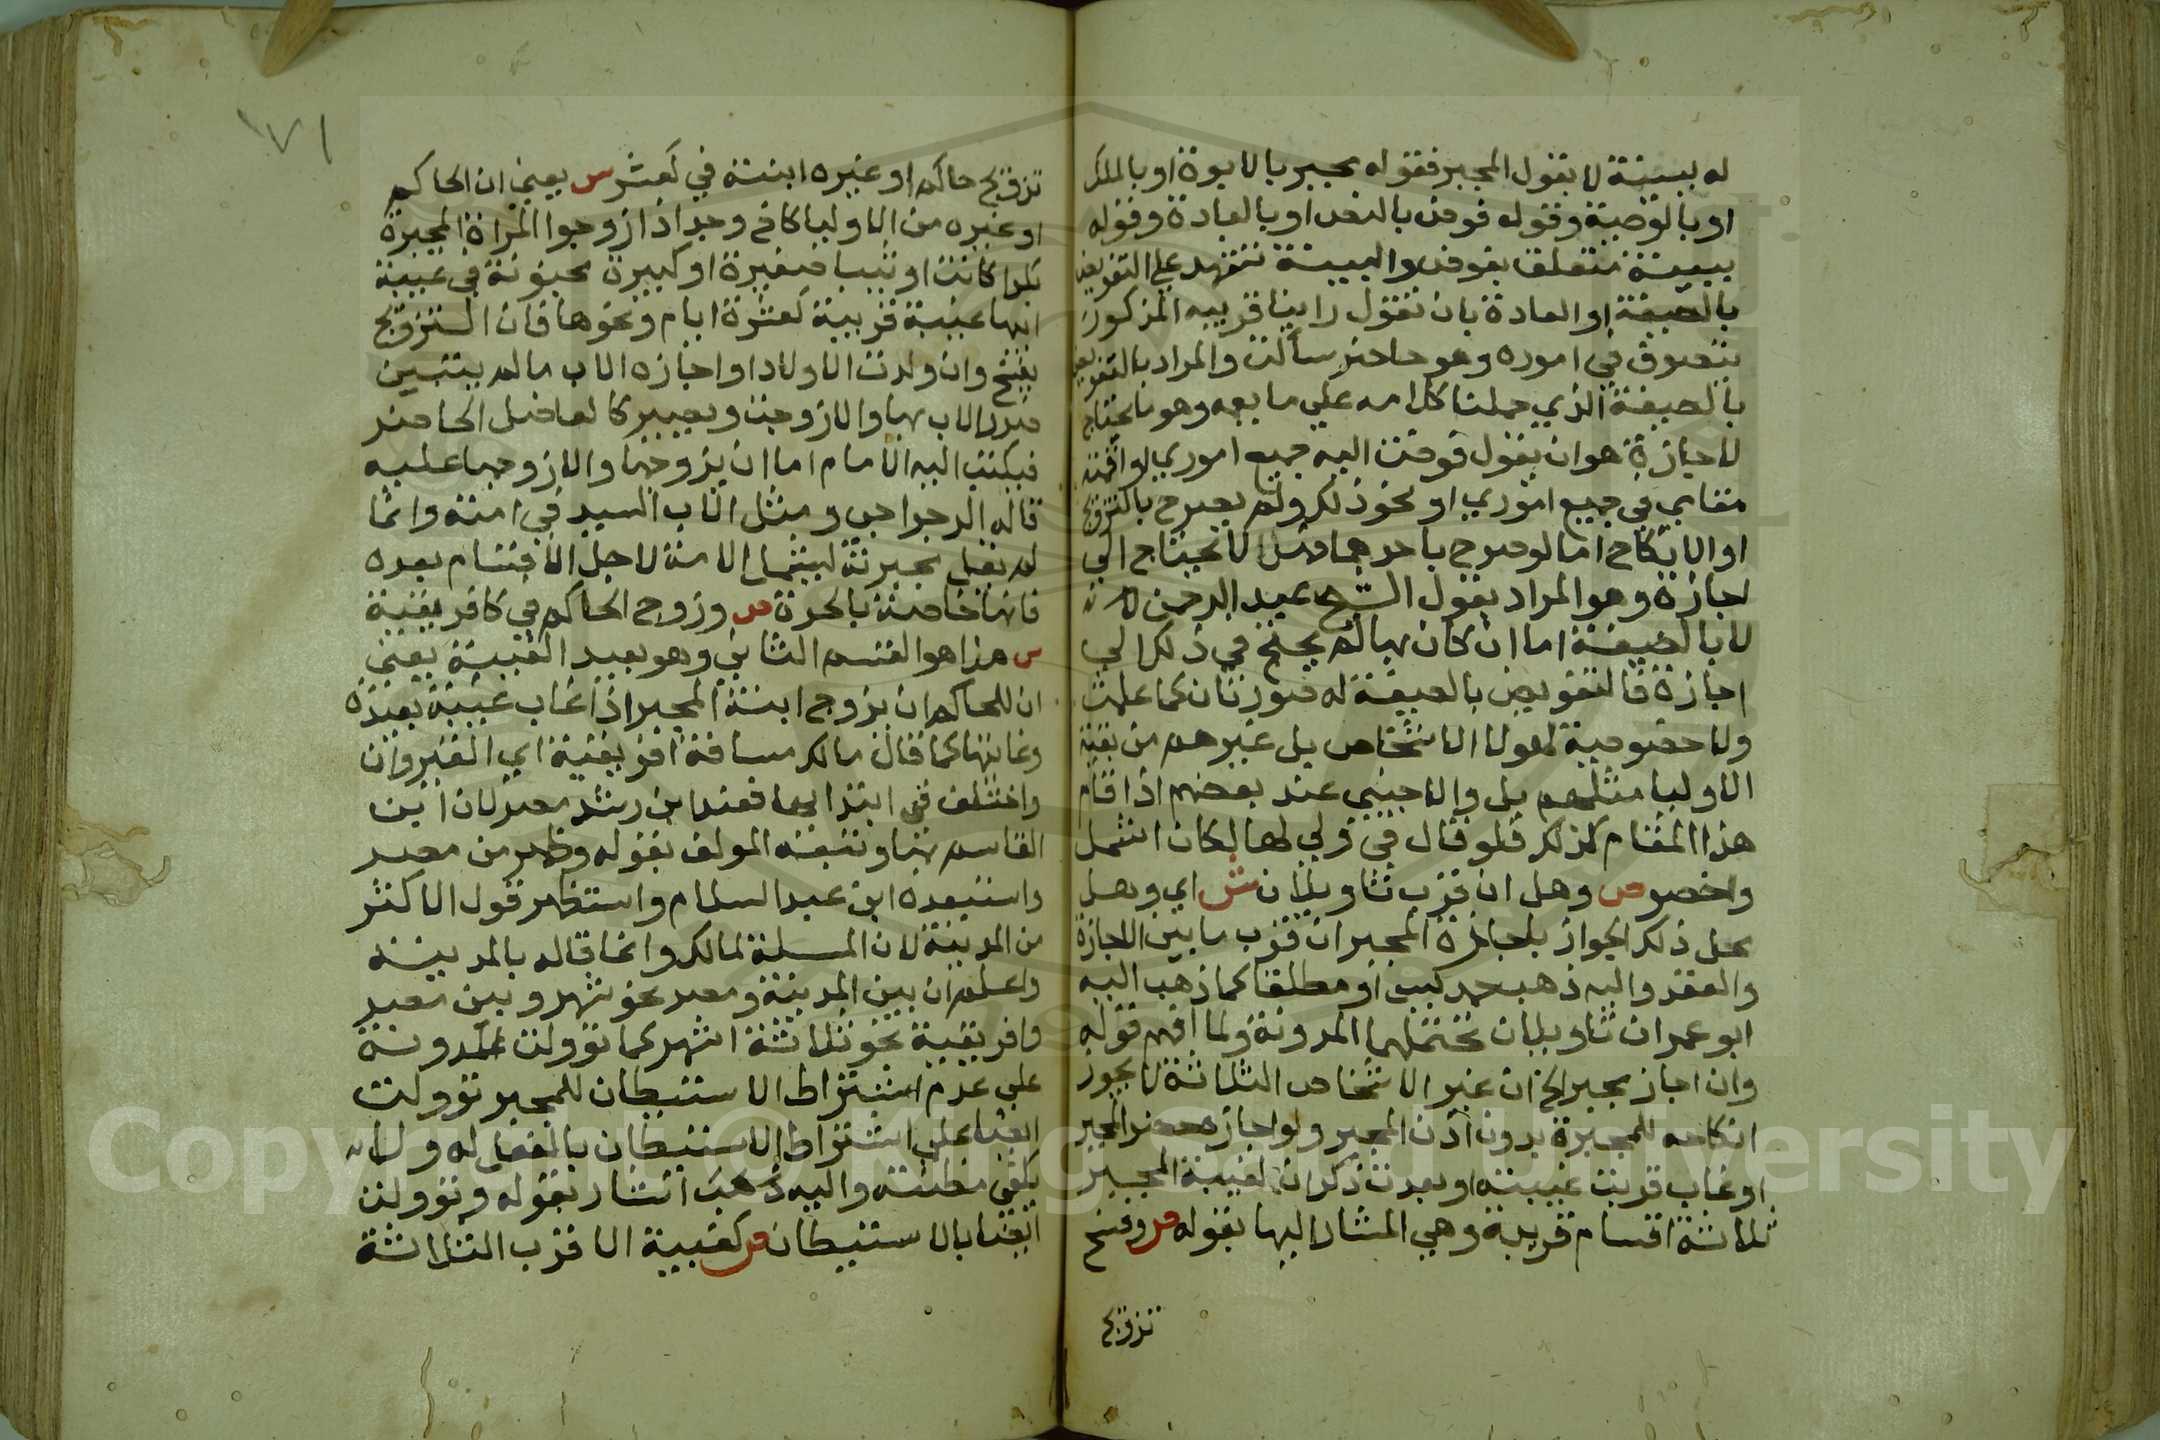 له ببينة لا بقول المجبر فقوله بجبر بالابوة او بالملك
او بالوصية وقوله فوض بالنص او بالعادة وقوله
ببينة متعلق بفوض والبينة تشهد علي التفويض
بالصيغة او العادة بان تقول راينا قريبه المذكور
يتصرف في اموره وهو حاضر ساكت والمراد بالتفويض
بالصيغة الذي حملنا كلامه علي ما يعمه وهو ما يحتاج
لاجازة هو ان يقول فوضت اليه جميع اموري او اقمته
مقامي في جميع اموري او نحو ذلك ولم يصرح بالتزويج
او الانكاح اما لو صرح باحدهما فلا يحتاج الي
اجازة وهو المراد بقول الشيخ عبد الرحمن لانه
لا بالصيغة اما ان كان بها لم يحتج في ذلك الي
اجازة فالتفويض بالصيغة له صورتان كما علمت
ولا خصوصية لهولا الاشخاص بل غيرهم من بقية
الاوليا مثلهم بل والاجنبي عند بعضهم اذا قام
هذا المقام كذلك فلو قال في ولي لها لكان اشمل
واخصر ص وهل ان قرب تاويلان ش اي وهل
محل ذلك الجواز باجازة المجبر ان قرب ما بين الاجازة
والعقد واليه ذهب حمديس او مطلقا كما ذهب اليه
ابو عمران تاويلان تحتملهما المدونة ولما افهم قوله
وان اجاز مجبر الخ ان غير الاشخاص الثلاثة لا يجوز
انكاحه للمجبرة بدون اذن المجبر ولو اجازه حضر المجبر
او غاب قربت غيبته او بعدت ذكر ان لغيبة المجبر
ثلاثة اقسام قريبة وهي المشار اليها بقوله ص وفسخ
تزويج
١٧١
تزويج حاكم او غيره ابنته في كعشر س يعني ان الحاكم
او غيره من الاوليا كاخ وجد اذا زوجوا المراة المجبرة
بكرا كانت او ثيبا صغيرة او كبيرة مجنونة في غيبة
ابيها غيبة قريبة كعشرة ايام ونحوها فان التزويج
يفسخ وان ولدت الاولاد او اجازه الاب ما لم يتبين
ضرر الاب بها والا زوجت ويصير كالعاضل الحاضر
فيكتب اليه الامام اما ان يزوجها والا زوجها عليه
قاله الرجراجي ومثل الاب السيد في امته وانما
لم نقل مجبرته ليشمل الامة لاجل الاقسام بعده
فانها خاصة بالحرة ص وزوج الحاكم في كافريقية
س هذا هو القسم الثاني وهو بعيد الغيبة يعني
ان للحاكم ان يزوج ابنة المجبر اذا غاب غيبة بعيدة
وغايتها كما قال مالك مسافة افريقية اي القيروان
واختلف في ابتدايها فعند ابن رشد مصر لان ابن
القاسم بها وتبعه المولف بقوله وظهر من مصر
واستبعده ابن عبد السلام واستظهر قول الاكثر
من المدينة لان المسلة لمالك وانما قاله بالمدينة
واعلم ان بين المدينة ومصر نحو شهر وبين مصر
وافريقية نحو ثلاثة اشهر كما توولت المدونة
علي عدم اشتراط الاستيطان للمجبر توولت
ايضا علي اشتراط الاستيطان بالفعل له ولا
يكفي مظنته واليه ذهب اشار بقوله وتوولت
ايضا بالاستيطان ص كغيبة الاقرب الثلاثة